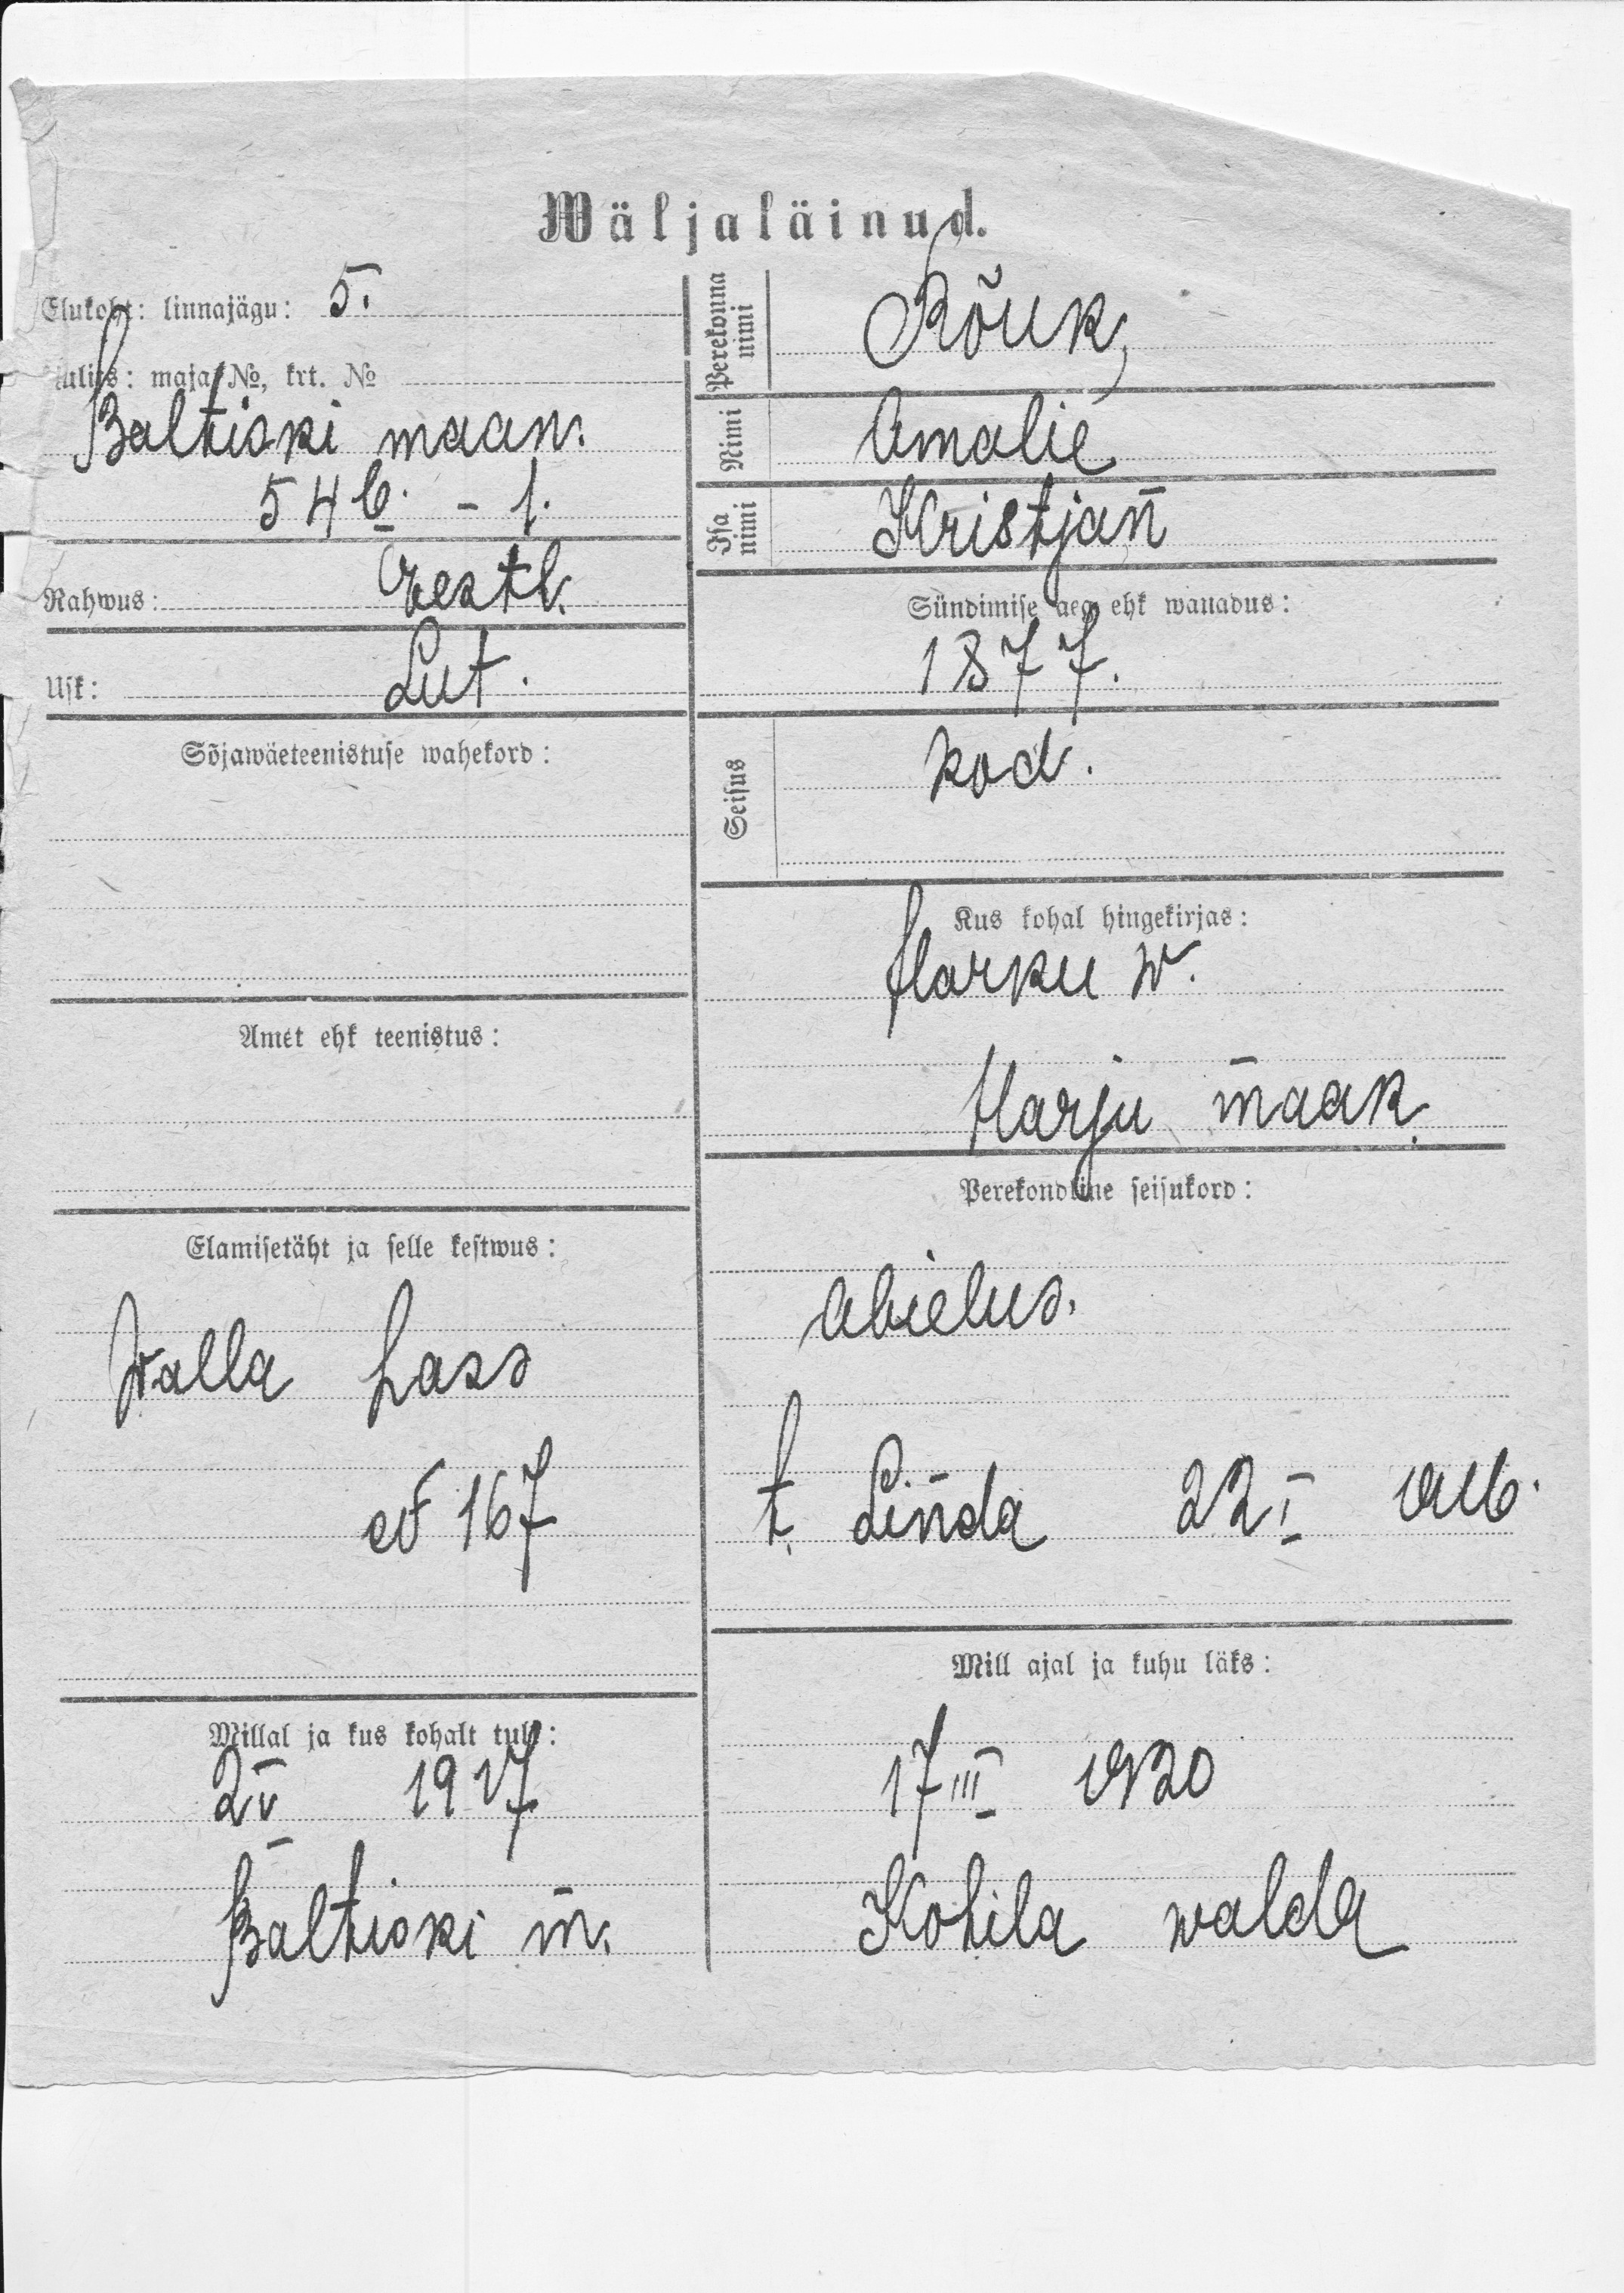 Wäljaläinud.
Elukoht: linnajägu: 5.
uulits: maja №, krt. №
Baltiski maan.
54 b. - 1.
Rahwus: Eestl.
Usk: Lut.
Sõjawäeteenistuse wahekord:
Amet ehk teenistus:
Elamisetäht ja selle kestwus:
Walla pass
№ 167
Millal ja kus kohalt tuli:
2 V 1917
Baltiski m.
Perekonna nimi
Rõuk,
Nimi
Amalie
Isa nimi
Kristjan
Sündimise aeg ehk wanadus:
1877.
Seisus
kod.
Kus kohal hingekirjas:
Harku w.
Harju maak.
Perekondline seisukord:
abielus.
t. Linda 22 I
Mill ajal ja kuhu läks:
17 III 1920
Kohila walda